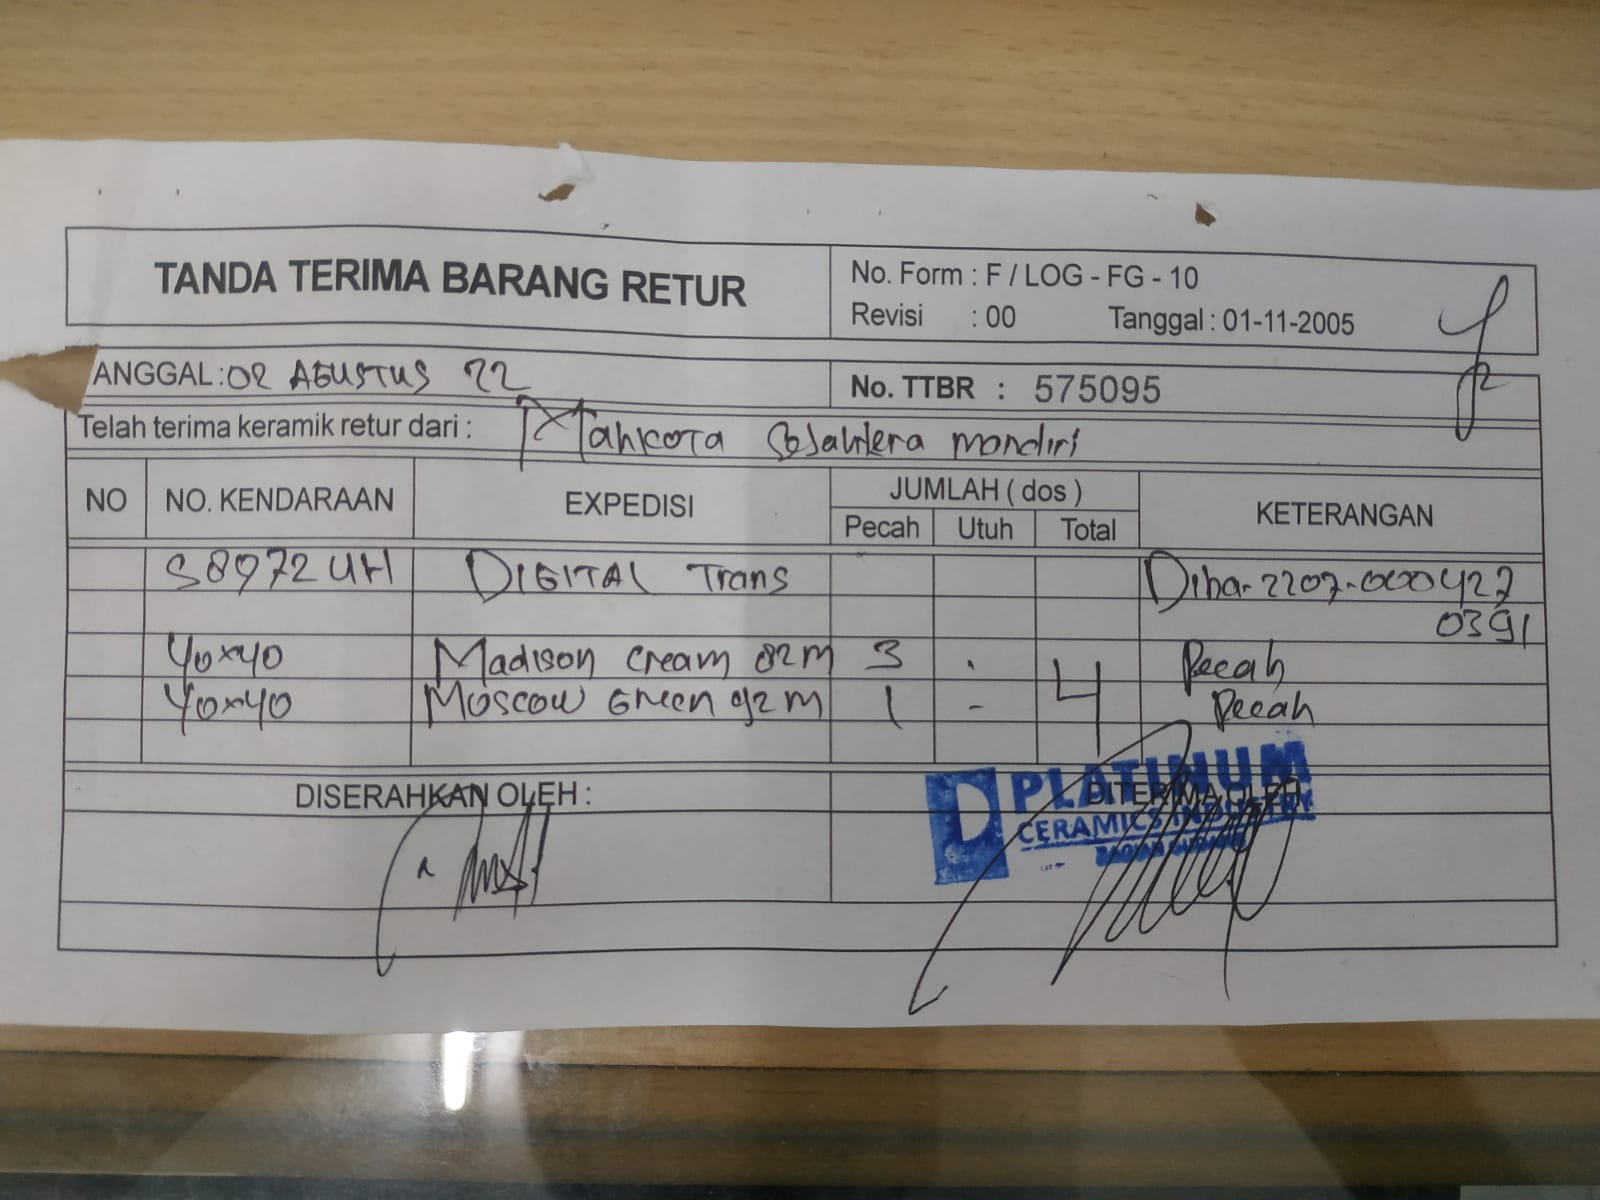 TANDA TERIMA BARANG RETUR
No. Form : F / LOG - FG - 10
Revisi : 00 Tanggal : 01-11-2005
ANGGAL : 02 AGUSTUS 22
No. TTBR : 575095
Telah terima keramik retur dari : Mahkota Sejahtera mandiri
NO NO. KENDARAAN EXPEDISI JUMLAH ( dos ) KETERANGAN
Pecah Utuh Total
S8972UH DIGITAL Trans Diba-2207-000427
0391
40x40 Madison cream 82M 3 - Pecah
4
40x40 Moscow Green 92M 1 - Pecah
DISERAHKAN OLEH : DITERIMA OLEH
PLATINUM
CERAMICS INDUSTRY